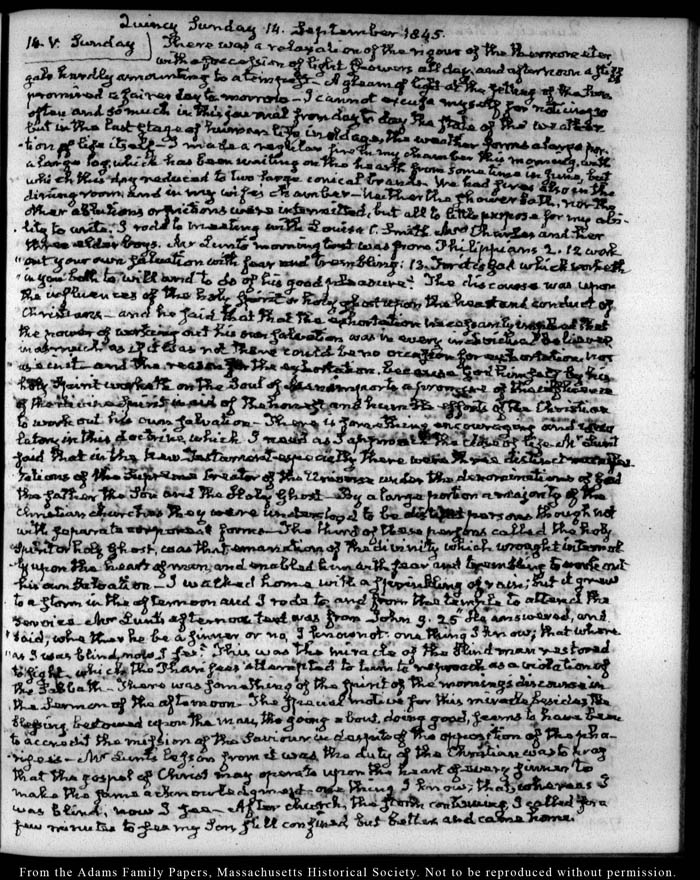 Quincy Sunday 14. September 1845.
14. V. Sunday } There was a relaxation of the rigour of the thermometer
with a succession of light showers all day, and afternoon a
gale hardly amounting to a tempest — A gleam of light at the setting of the Sun
promised a fairer day to morrow — I cannot excuse myself for noticing so
often and so much in this journal from day to day the state of the weather
but in the last stage of human life in old age, the weather forms a large por-
tion of life itself — I made a regular fire in my chamber this morning, with
a large log, which has been waiting on the hearth from some time in June, but
which this day reduced to two large conical brands. We had fires also in the
dining room, and in my wife's chamber — Neither the shower bath, nor the
other ablutions or frictions were intermitted, but all to little purpose for my abi-
lity to write. I rode to meeting with Louisa C. Smith Mrs Charles and her
three elder boys. Mr Lunt's morning text was from Philippians 2. 12 work
"out your own salvation with fear and trembling: 13. For it is God which worketh
in you both to will and to do of his good pleasure." The discourse was upon
the influences of the holy spirit or holy ghost upon the heart and conduct of
Christians — and he said that the exhortation necessarily implied that
the power of working out his own salvation was in every individual believer
inasmuch as if it was not there could be no occasion for exhortation nor
and the reason for the exhortation, because God himself by his
holy Spirit worketh on the Soul of man imports a promise of the efficience
of the divine Spirit in aid of the honest and humble efforts of the Christian
to work out his own salvation — There is something encouraging and
in this doctrine, which I need as I approach the close of life. Mr Lunt
said that in the New Testament especially there were three distinct manifes-
tations of the Supreme Creator of the Universe under the denominations of God
the father the Son and the Holy Ghost — By a large portion a majority of the
christian churches they were understood to be distinct persons though not
with separate corporeal forms — The third of these persons called the holy
spirit or holy Ghost, was that emanation of the divinity which wrought internal-
ly upon the heart of man, and enabled him with fear and trembling to work out
his own Salvation — I walked home with a sprinkling of rain; but it grew
to a storm in the afternoon and I rode to, and from the temple to attend the
service. Mr Lunt's afternoon text was from John 9. 25 He answered, and
said, whether he be a sinner or no, I know not: one thing I know, that where-
"as I was blind, now I see." This was the miracle of the blind man restored
to sight, which the Pharisees attempted to turn to reproach as a violation of
the Sabbath — There was something of the spirit of the morning's discourse in
the Sermon of the afternoon — The special motive for this miracle besides the
blessing bestowed upon the man, the going about, doing good, seems to have been
to accredit the mission of the Saviour in despite of the opposition of the pha-
risees — Mr Lunt's lesson from it was the duty of the Christian was to pray
that the gospel of Christ may operate upon the heart of every sinner to
make the same acknowledgment, one thing I know; that, whereas I
was blind, now I see — After church, the storm continuing, I called for a
few minutes to see my Son still confined but better, and came home.
From the Adams Family Papers, Massachusetts Historical Society. Not to be reproduced without permission.